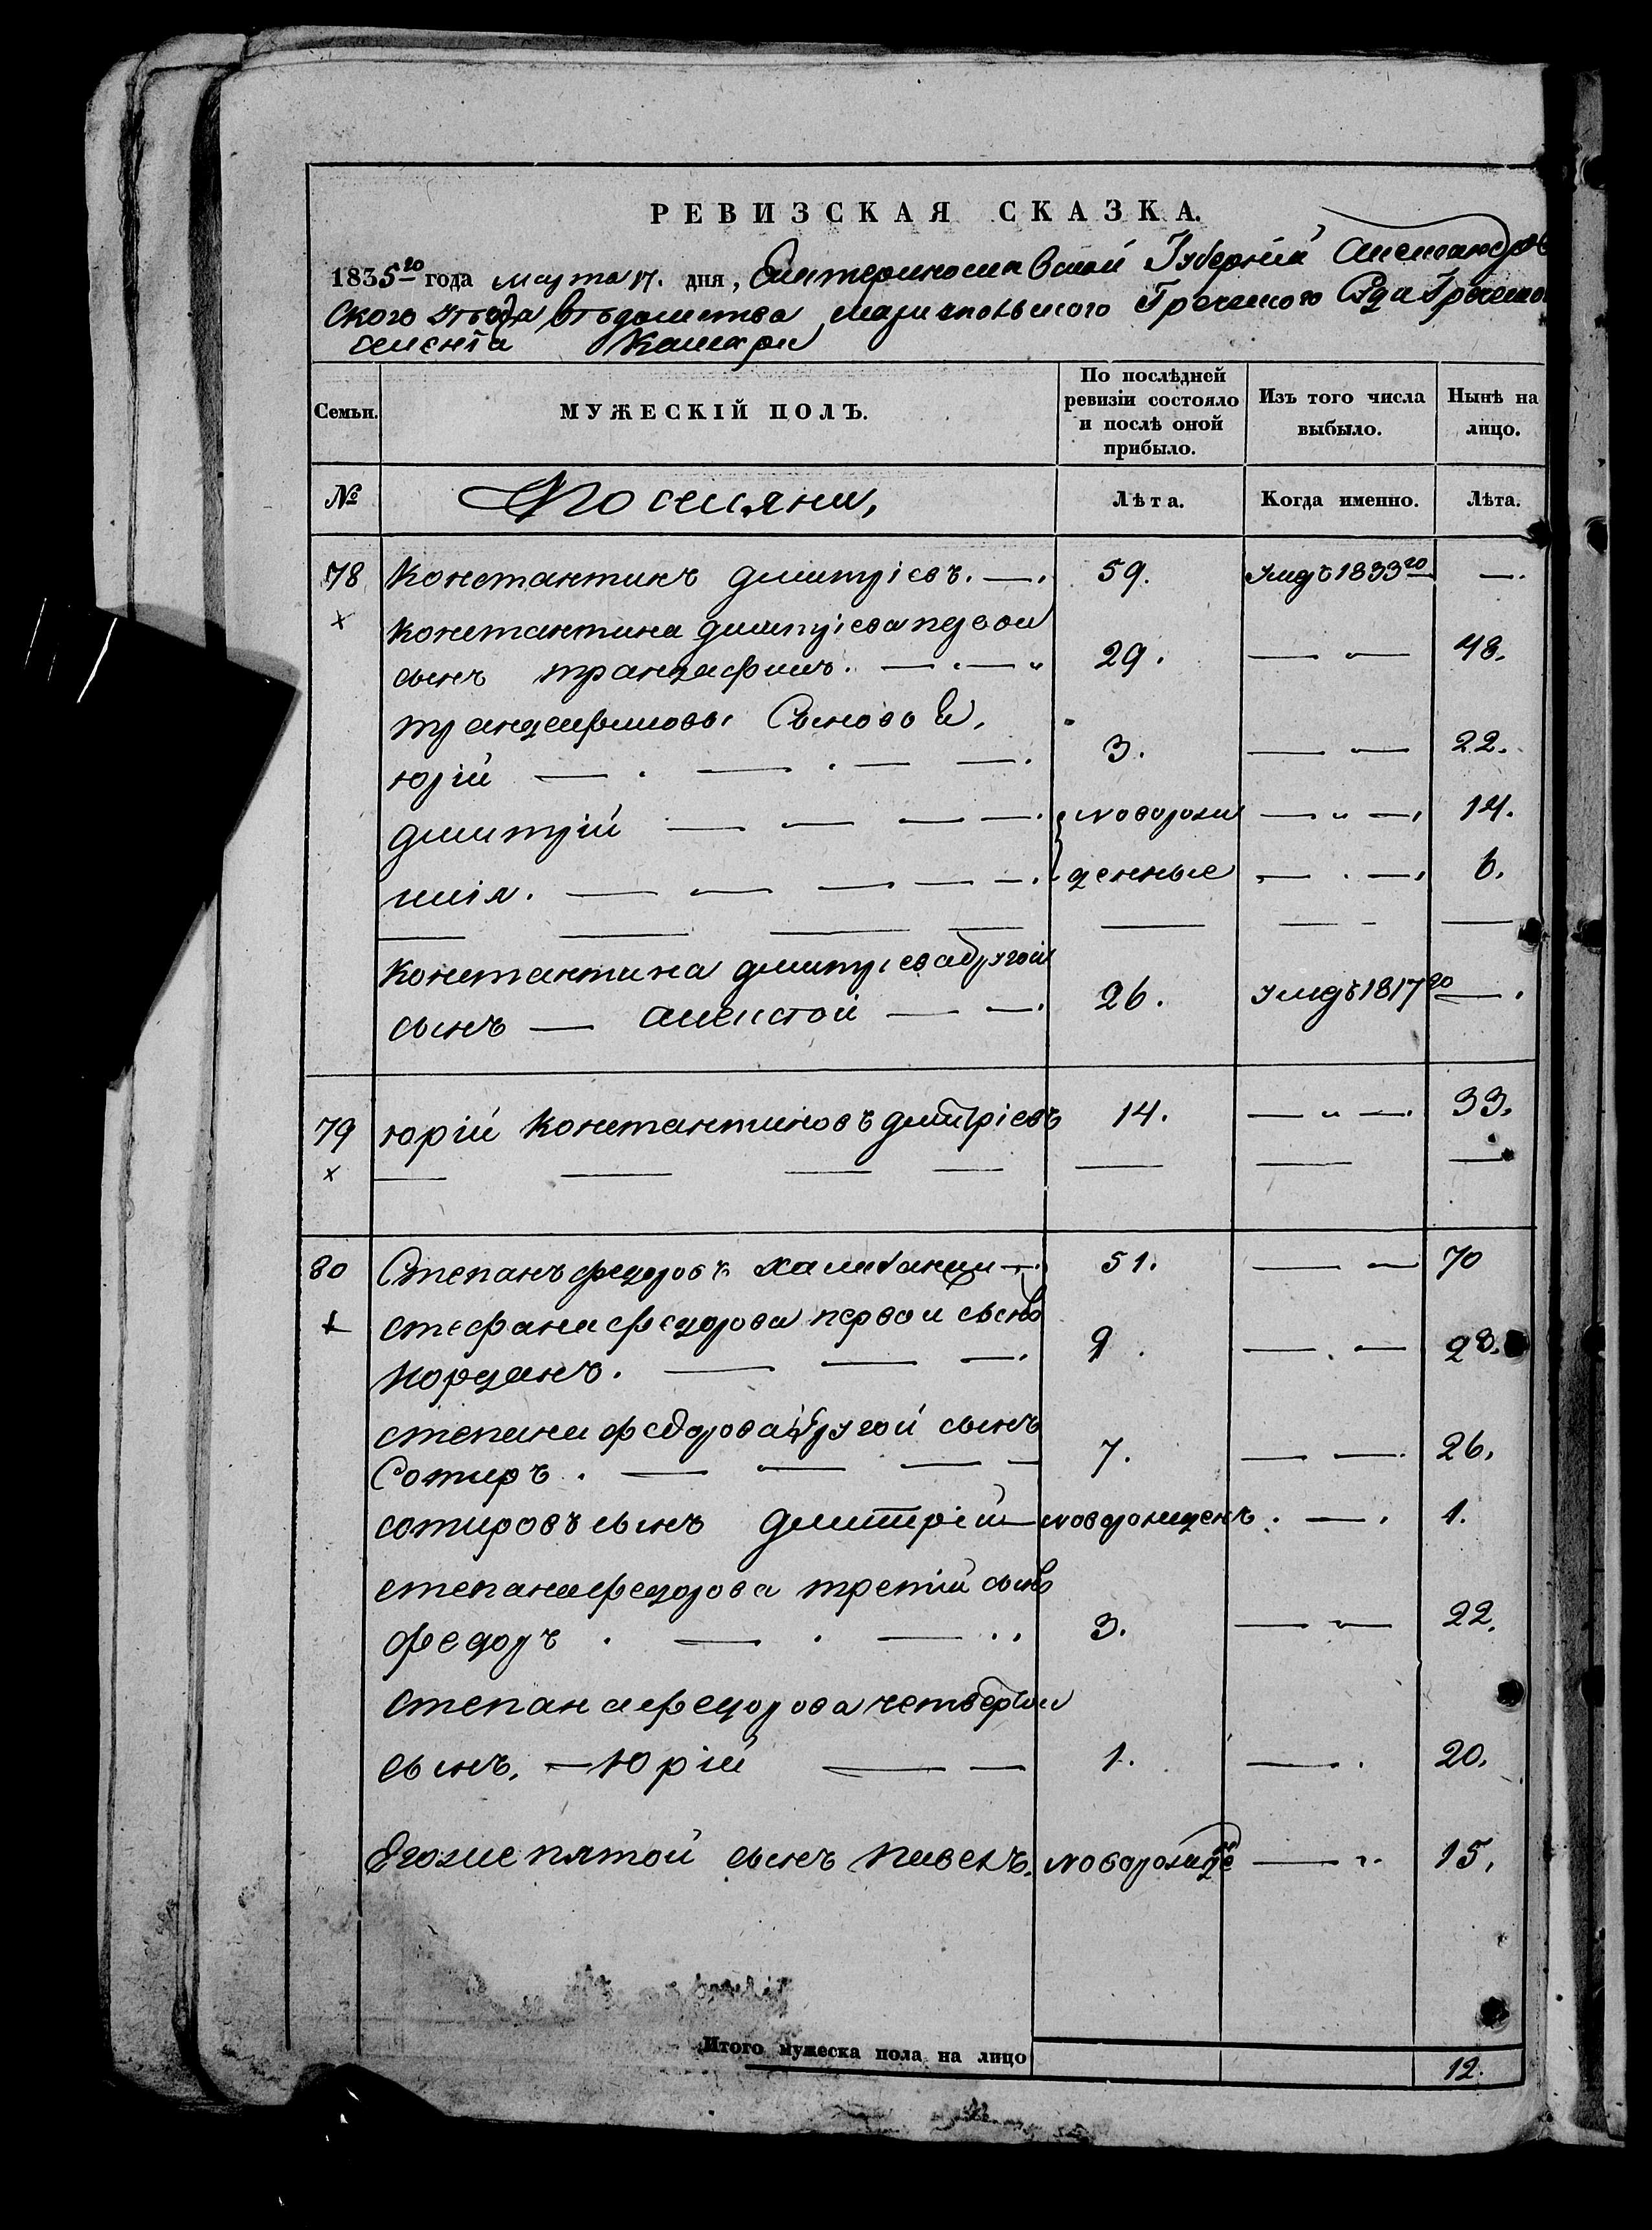 РЕВИЗСКАЯ СКАЗКА.
1835го года марта 17. дня, Екатеринославской Губернiи Александров
ского уѣзда вѣдомства марiупольского Греческого Суда Греческого
селенiя
Семьи. МУЖЕСКIЙ ПОЛЪ. По послѣдней ревизiи состояло и послѣ оной прибыло. Изъ того числа выбыло. Нынѣ на лицо.
№ Поселяни, Лѣта. Когда именно. Лѣта.
78 Константинъ дмитрiевъ. — . 59. Умеръ 1833го — .
х Константина дмитрiева первои
сынъ трандафилъ. — . — „ 29. — „ — 48.
трандафиловы Сыновьи,
юрiй — . — . — — . 3. — „ — 22.
дмитрiй — — — — . новорож — „ — . 14.
илiя. — — — — — . денные — . — . 6.
Константина дмитрiева другой
сынъ — алексѣй — — . 26. умеръ 1817го — .
79 юрiй Константиновъ дмитрiевъ 14. — „ — . 33.
х
80 Степанъ федоровъ — . 51. — „ — 70
х стефана федорова первои сынъ
иорданъ. — — — . 9. — . — 28.
степана федорова другой сынъ
Сотиръ. — — — — 7. — — . 26.
сотировъ сынъ дмитрiй — новорожденъ. — . 1.
степана федорова третiй сынъ
федоръ . — . — . . 3. — „ — 22.
степана федорова четвертои
сынъ, — Юрiй — — 1. — . 20.
Егоже пятой сынъ павелъ. новорожде — „ . 15.
Итого мужеска пола на лицо 12.